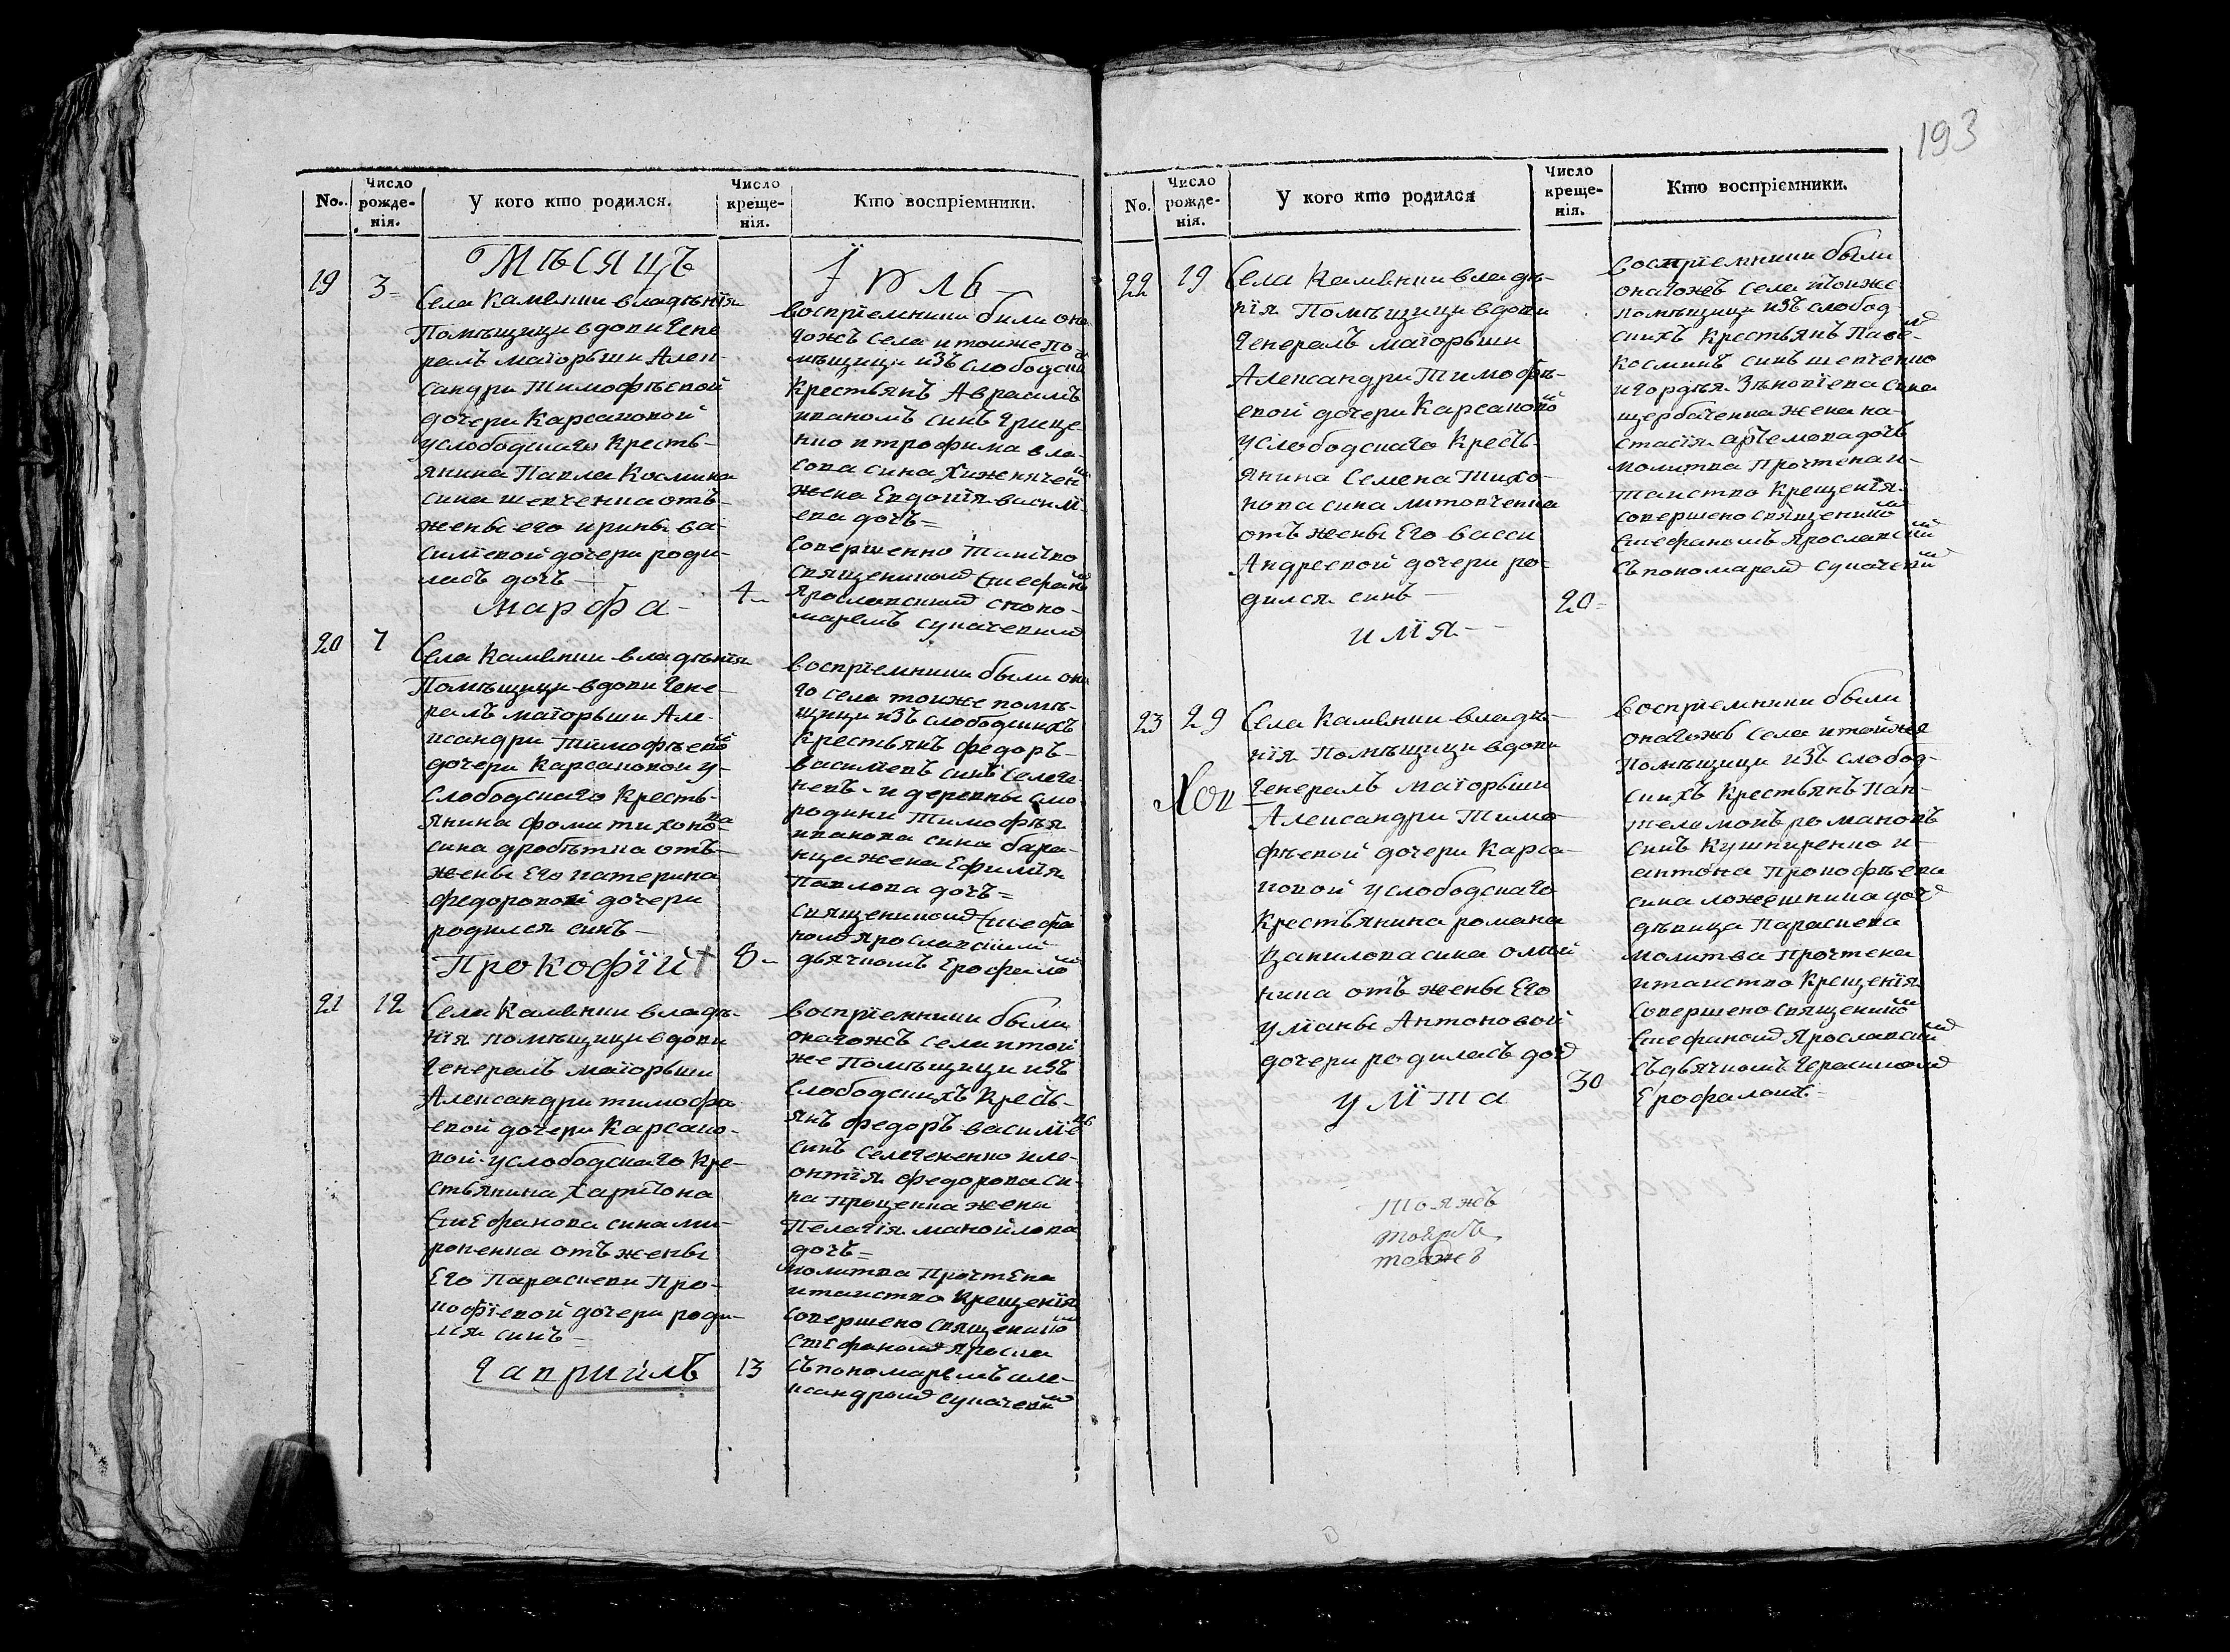 193
No.
Число рожде-нія.
У кого кто родился.
Число креще-нія.
Кто воспріемники.
Мѣсяцъ
Іюль
19
3
Села Каменки владѣнїя
Помѣщици вдови Гене
ралъ маіорьши Алек-
сандри Тимофѣевой
дочери Карсаковой
услободскаго кресть-
янина Павла Космина
сина шевченка отъ
жены его ирины ва-
силїевой дочери роди-
лась дочь
Марфа
4
воспрїемники били она
гожъ села и тоиже по-
мѣщици изъ слободски
крестьянъ Авраамъ
ивановъ синъ грице
нко и трофима вла-
сова сина Хижнячен
жена Евдокїя васил
ева дочь
совершенно таинство
священикомъ Стефано
Ярославскимъ споно-
маремъ сукачевимъ
20
7
Села Каменки владѣнїя
Помѣщици вдови Гене-
ралъ маїорьши Але-
ксандри Тимофѣево
дочери Карсаковои у-
слободскаго кресть-
янина фоми тихонова
сина дробѣтка отъ
жены Его катерина
федоровой дочери
родился синъ
Прокофїй
8
воспрїемники были она
го села тоиже помѣ-
щици изъ слободскихъ
крестьянъ федоръ
василїевъ синъ селеге-
невъ и деревны смо
родини Тимофѣя
иванова сина бара-
нца жена Ефимїя
Павлова дочь
священикомъ Стефа
номъ Ярославскимъ
дьячкомъ Ерофало
21
12
Села Каменки владѣ-
нїя помѣщици вдови
Генералъ маїорьши
Александри тимофѣ
евой дочери Карсако-
вой услободскаго кре-
стьянина Харитона
Стефанова сина ми-
роненка отъ жены
Его Параскеви Про-
кофїевой дочери роди-
лся синъ
Гавриилъ
13
воспрїемники были
онагожъ села и той
же Помѣщици изъ
слободскихъ крест-
янъ федоръ василїевъ
синъ селегененко и ле-
онтїя федорова си-
на проценка жена
Пелагїя манойлова
дочь
молитва Прочтена
и таинство Крещенїя
совершено священико
стефаномъ Яросла
съ пономаремъ але-
ксандромъ сукачеви
No.
Число рожде-нія.
У кого кто родился
Число креще-нія.
Кто воспріемники.
22
19
Села Каменки владѣ-
нїя Помѣщици вдови
Генералъ маїорьши
Александри Тимофѣ-
евой дочери Карсаково
услободскаго крест-
янина Семена Тихо-
нова сина литовченка
отъ жены Его васси
Андреевой дочери ро-
дился синъ
илїя
20
воспрїемники были
онагожъ села и тоиже
помѣщици изъ слобод-
скихъ крестьянъ Паве
косминъ синъ шевченко
игордѣя Зѣновїева сина
щербаченка жена на-
стасїя артемова дочь
молитва Прочтена и
таинство Крещенїя
совершено священико
Стефаномъ Ярославски
съ пономаремъ сукачеви
23
29
Села Каменки владѣ-
нїя Помѣщици вдови
Генералъ маїорьши
Александри Тимо-
фѣевой дочери Карса-
ковой услободскаго
крестьянина романа
Данилова сина
отъ жены Его
улїаны Антоновой
дочери родилась доч
улїта
30
воспрїемники были
онагожъ села и тойже
Помѣщици изъ слобод-
скихъ крестьянъ Пан-
телемонъ романовъ
синъ Кушниренко и
антона Прокофѣева
сина ложешника доч
дѣвица Параскева
молитва прочтена
и таинство Крещенїя
совершено священико
Стефаномъ Ярославски
съ дьячкомъ Герасимомъ
Ерофаловъ
тояжъ